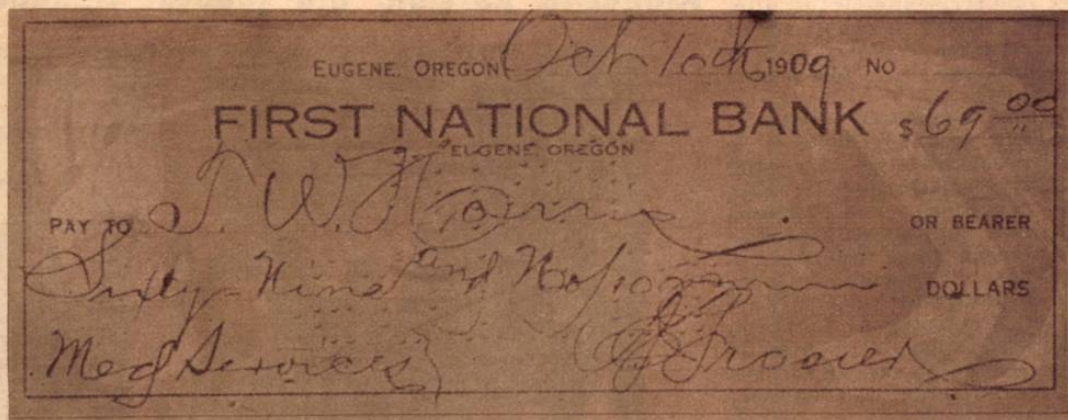 EUGENE, OREGON Oct 10th 1909 No
FIRST NATIONAL BANK $69 00
EUGENE OREGON
PAY TO T. W. Harris OR BEARER
Sixty-Nine and No/100 DOLLARS
Med Services